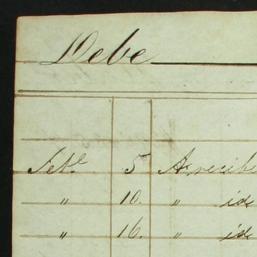 Debe
Setᵉ 5 A recibe
" 10. " id
" 16. " id